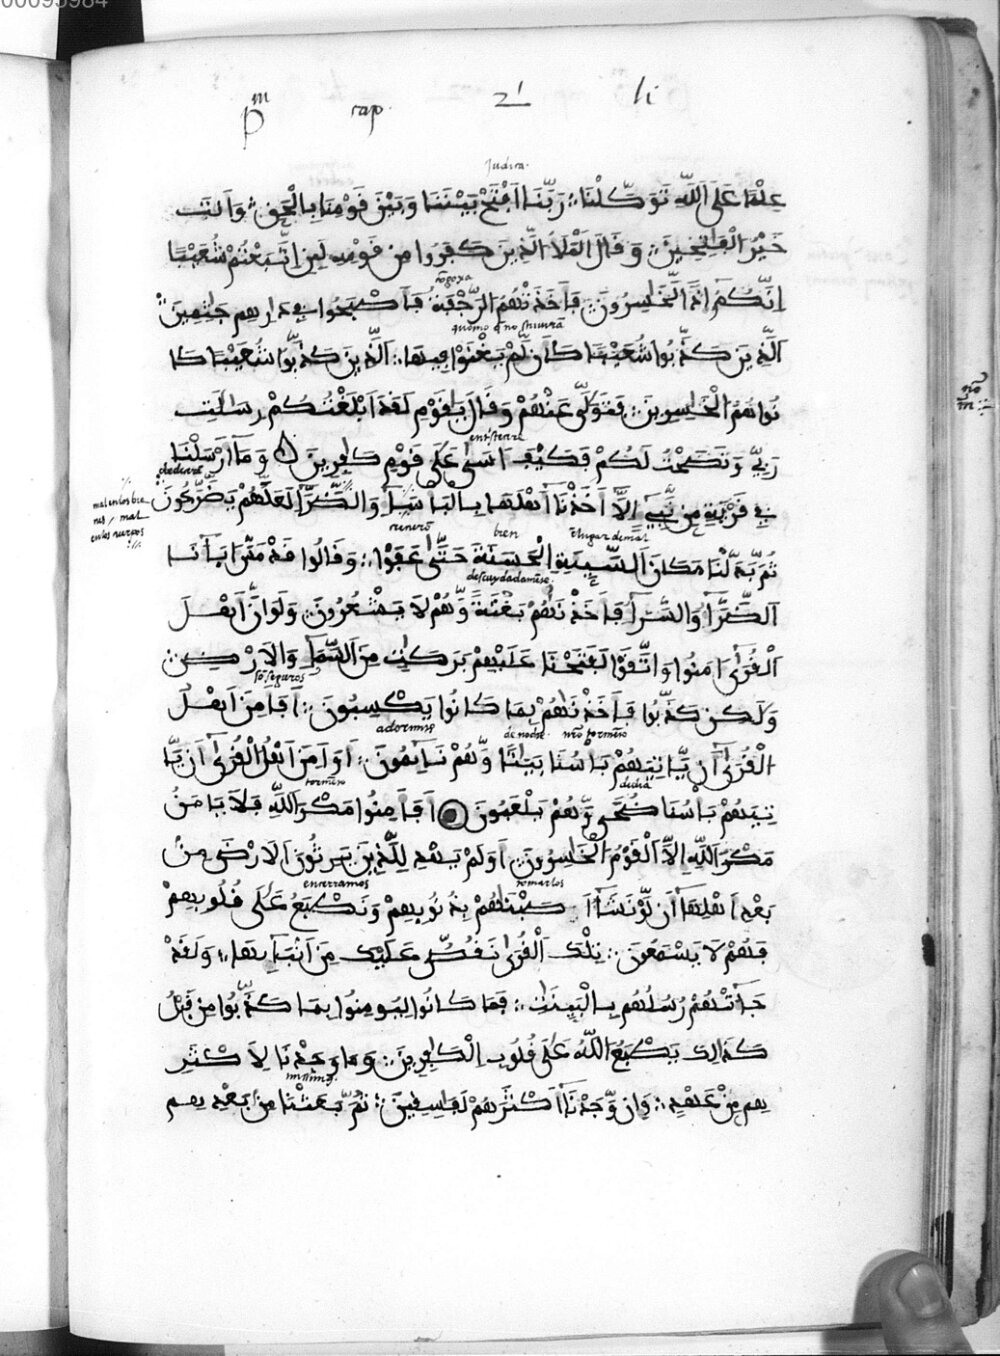 00095984
pm cap 21 li
Judica.
عِلْمًا عَلَى اَللَّهِ تَوَكَّلْنَا رَبَّنَا اَفْتَحْ بَيْنَنَا وَبَيْنَ قَوْمِنَا بِالْحَقِّ وَأَنتَ
خَيْرُ الْفَاتِحِينَ وَقَالَ اَلْمَلَأُ الَّذِينَ كَفَرُوا مِن قَوْمِهِ لَئِنِ اتَّبَعْتُمْ شُعَيْبًا
إِنَّكُمْ إِذًا لَّخَاسِرُونَ فَأَخَذَتْهُمُ الرَّجْفَةُ فَأَصْبَحُوا فِي دَارِهِمْ جَاثِمِينَ
quomo q no
الَّذِينَ كَذَّبُوا شُعَيْبًا كَأَن لَّمْ يَغْنَوْا فِيهَا الَّذِينَ كَذَّبُوا شُعَيْبًا كَا
نُوا هُمُ الْخَاسِرِينَ فَتَوَلَّى عَنْهُمْ وَقَالَ يَاقَوْمِ لَقَدْ أَبْلَغْتُكُمْ رِسَالَاتِ
رَبِّي وَنَصَحْتُ لَكُمْ فَكَيْفَ ءَاسَى عَلَى قَوْمٍ كَافِرِينَ وَمَا أَرْسَلْنَا
فِي قَرْيَةٍ مِن نَّبِيءٍ إِلَّا أَخَذْنَا أَهْلَهَا بِالْبَأْسَاءِ وَالضَّرَّاءِ لَعَلَّهُمْ يَضَّرَّعُونَ
mal en los bienes / mal en los cuerpos
bien
ثُمَّ بَدَّلْنَا مَكَانَ السَّيِّئَةِ الْحَسَنَةَ حَتَّى عَفَوْا وَقَالُوا قَدْ مَسَّ ءَابَاءَنَا
descuydadamēte.
الضَّرَّاءُ وَالسَّرَّاءُ فَأَخَذْنَاهُمْ بَغْتَةً وَهُمْ لَا يَشْعُرُونَ وَلَوْ أَنَّ أَهْلَ
الْقُرَى ءَامَنُوا وَاتَّقَوْا لَفَتَحْنَا عَلَيْهِمْ بَرَكَاتٍ مِنَ السَّمَاءِ وَالْأَرْضِ
seguros
وَلَكِن كَذَّبُوا فَأَخَذْنَاهُمْ بِمَا كَانُوا يَكْسِبُونَ أَفَأَمِنَ أَهْلُ
de noche
الْقُرَى أَن يَأْتِيَهُمْ بَأْسُنَا بَيَاتًا وَهُمْ نَائِمُونَ أَوَ أَمِنَ أَهْلُ الْقُرَى أَن يَأْ
تِيَهُمْ بَأْسُنَا ضُحًى وَهُمْ يَلْعَبُونَ أَفَأَمِنُوا مَكْرَ اللَّهِ فَلَا يَأْمَنُ
مَكْرَ اللَّهِ إِلَّا الْقَوْمُ الْخَاسِرُونَ أَوَلَمْ يَهْدِ لِلَّذِينَ يَرِثُونَ الْأَرْضَ مِنْ
بَعْدِ أَهْلِهَا أَن لَّوْ نَشَاءُ أَصَبْنَاهُمْ بِذُنُوبِهِمْ وَنَطْبَعُ عَلَى قُلُوبِهِمْ
فَهُمْ لَا يَسْمَعُونَ تِلْكَ الْقُرَى نَقُصُّ عَلَيْكَ مِنْ أَنبَائِهَا وَلَقَدْ
جَاءَتْهُمْ رُسُلُهُم بِالْبَيِّنَاتِ فَمَا كَانُوا لِيُومِنُوا بِمَا كَذَّبُوا مِن قَبْلُ
كَذَلِكَ يَطْبَعُ اللَّهُ عَلَى قُلُوبِ الْكَافِرِينَ وَمَا وَجَدْنَا لِأَكْثَرِ
هِم مِّنْ عَهْدٍ وَإِن وَّجَدْنَا أَكْثَرَهُمْ لَفَاسِقِينَ ثُمَّ بَعَثْنَا مِن بَعْدِهِم